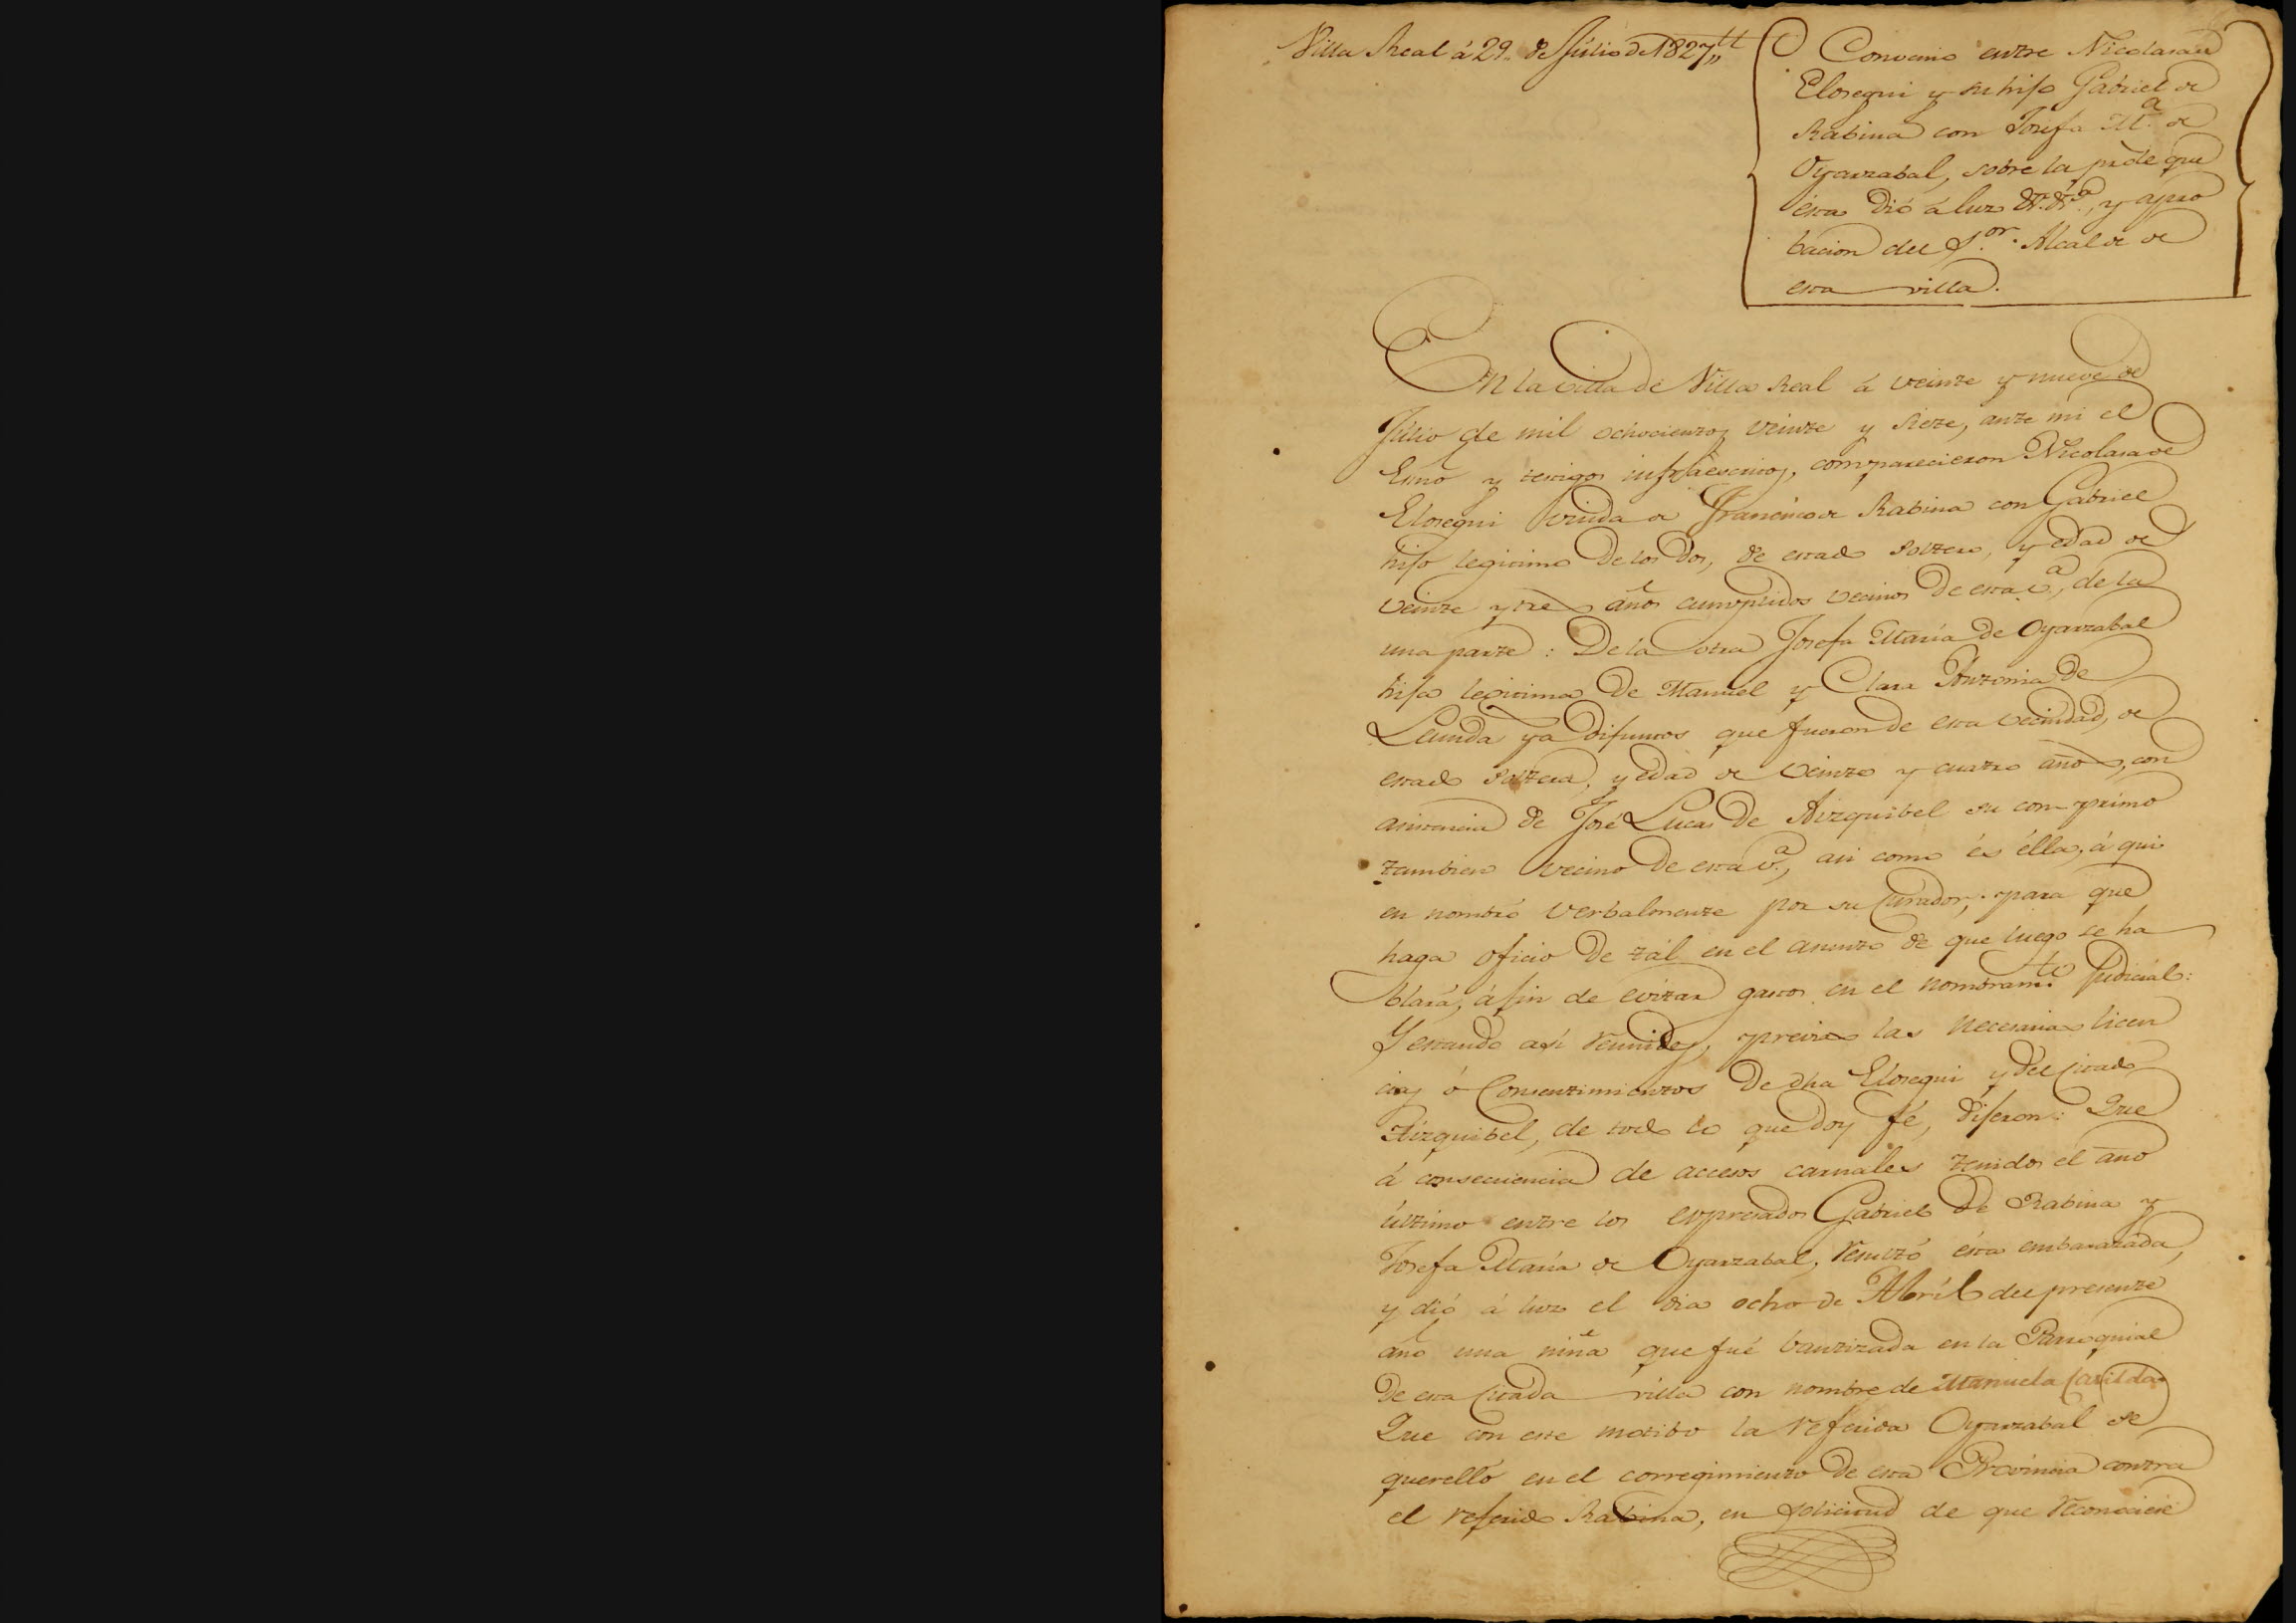 Villa Real á 29.. de Júlio de 1827,,
Convenio entre Nicolasa de
Elosegui y su hijo Gabriel de
Rabina con Josefa M.ª de
Oyarzabal, sobre la prole que
ésta dió á luz &.&.ª, y apro
bacion del S.or Alcalde de
esta villa.
En la villa de Villa Real á veinte y nueve de
Júlio de mil ochocientos veinte y siete, ante mi el
Esno y testigos infraescritos, comparecieron Nicolasa de
Elosegui viuda de Francisco de Rabina con Gabriel
hijo legitimo de los dos, de estado soltero, y edad de
veinte y tres años cumplidos vecinos de esta v.ª, de la
una parte: De la otra Josefa María de Oyarzabal
hija legitima de Manuel y Clara Antonia de
Leunda ya difuntos que fueron de esta vecindad, de
estado soltera, y edad de veinte y cuatro años, con
asistencia de José Lucas de Aizquibel su con-primo
tambien vecino de esta v.ª, asi como és élla, á qui
en nombró verbalmente por su Curador, para que
haga oficio de tál en el asunto de que luego se ha
blará, á fin de evitar gastos en el nombramto Judicial:
Y estando así reunidos, previas las necesarias licen
cias ó Consentimientos de dha Elosegui y del citado
Aizquibel, de todo lo que doy fé, dijeron: Que
á consecuencia de accesos carnáles tenidos el año
último entre los expresados Gabriel de Rabina y
Josefa María de Oyarzabal, resultó ésta embarazada,
y dió á luz el dia ocho de Abríl del presente
año una niña que fué bautizada en la Parroquial
de esta citada villa con nombre de Manuela Casilda.
Que con este motibo la referida Oyarzabal se
querelló en el corregimiento de esta Provincia contra
el referido Rabina, en solicitud de que reconociese